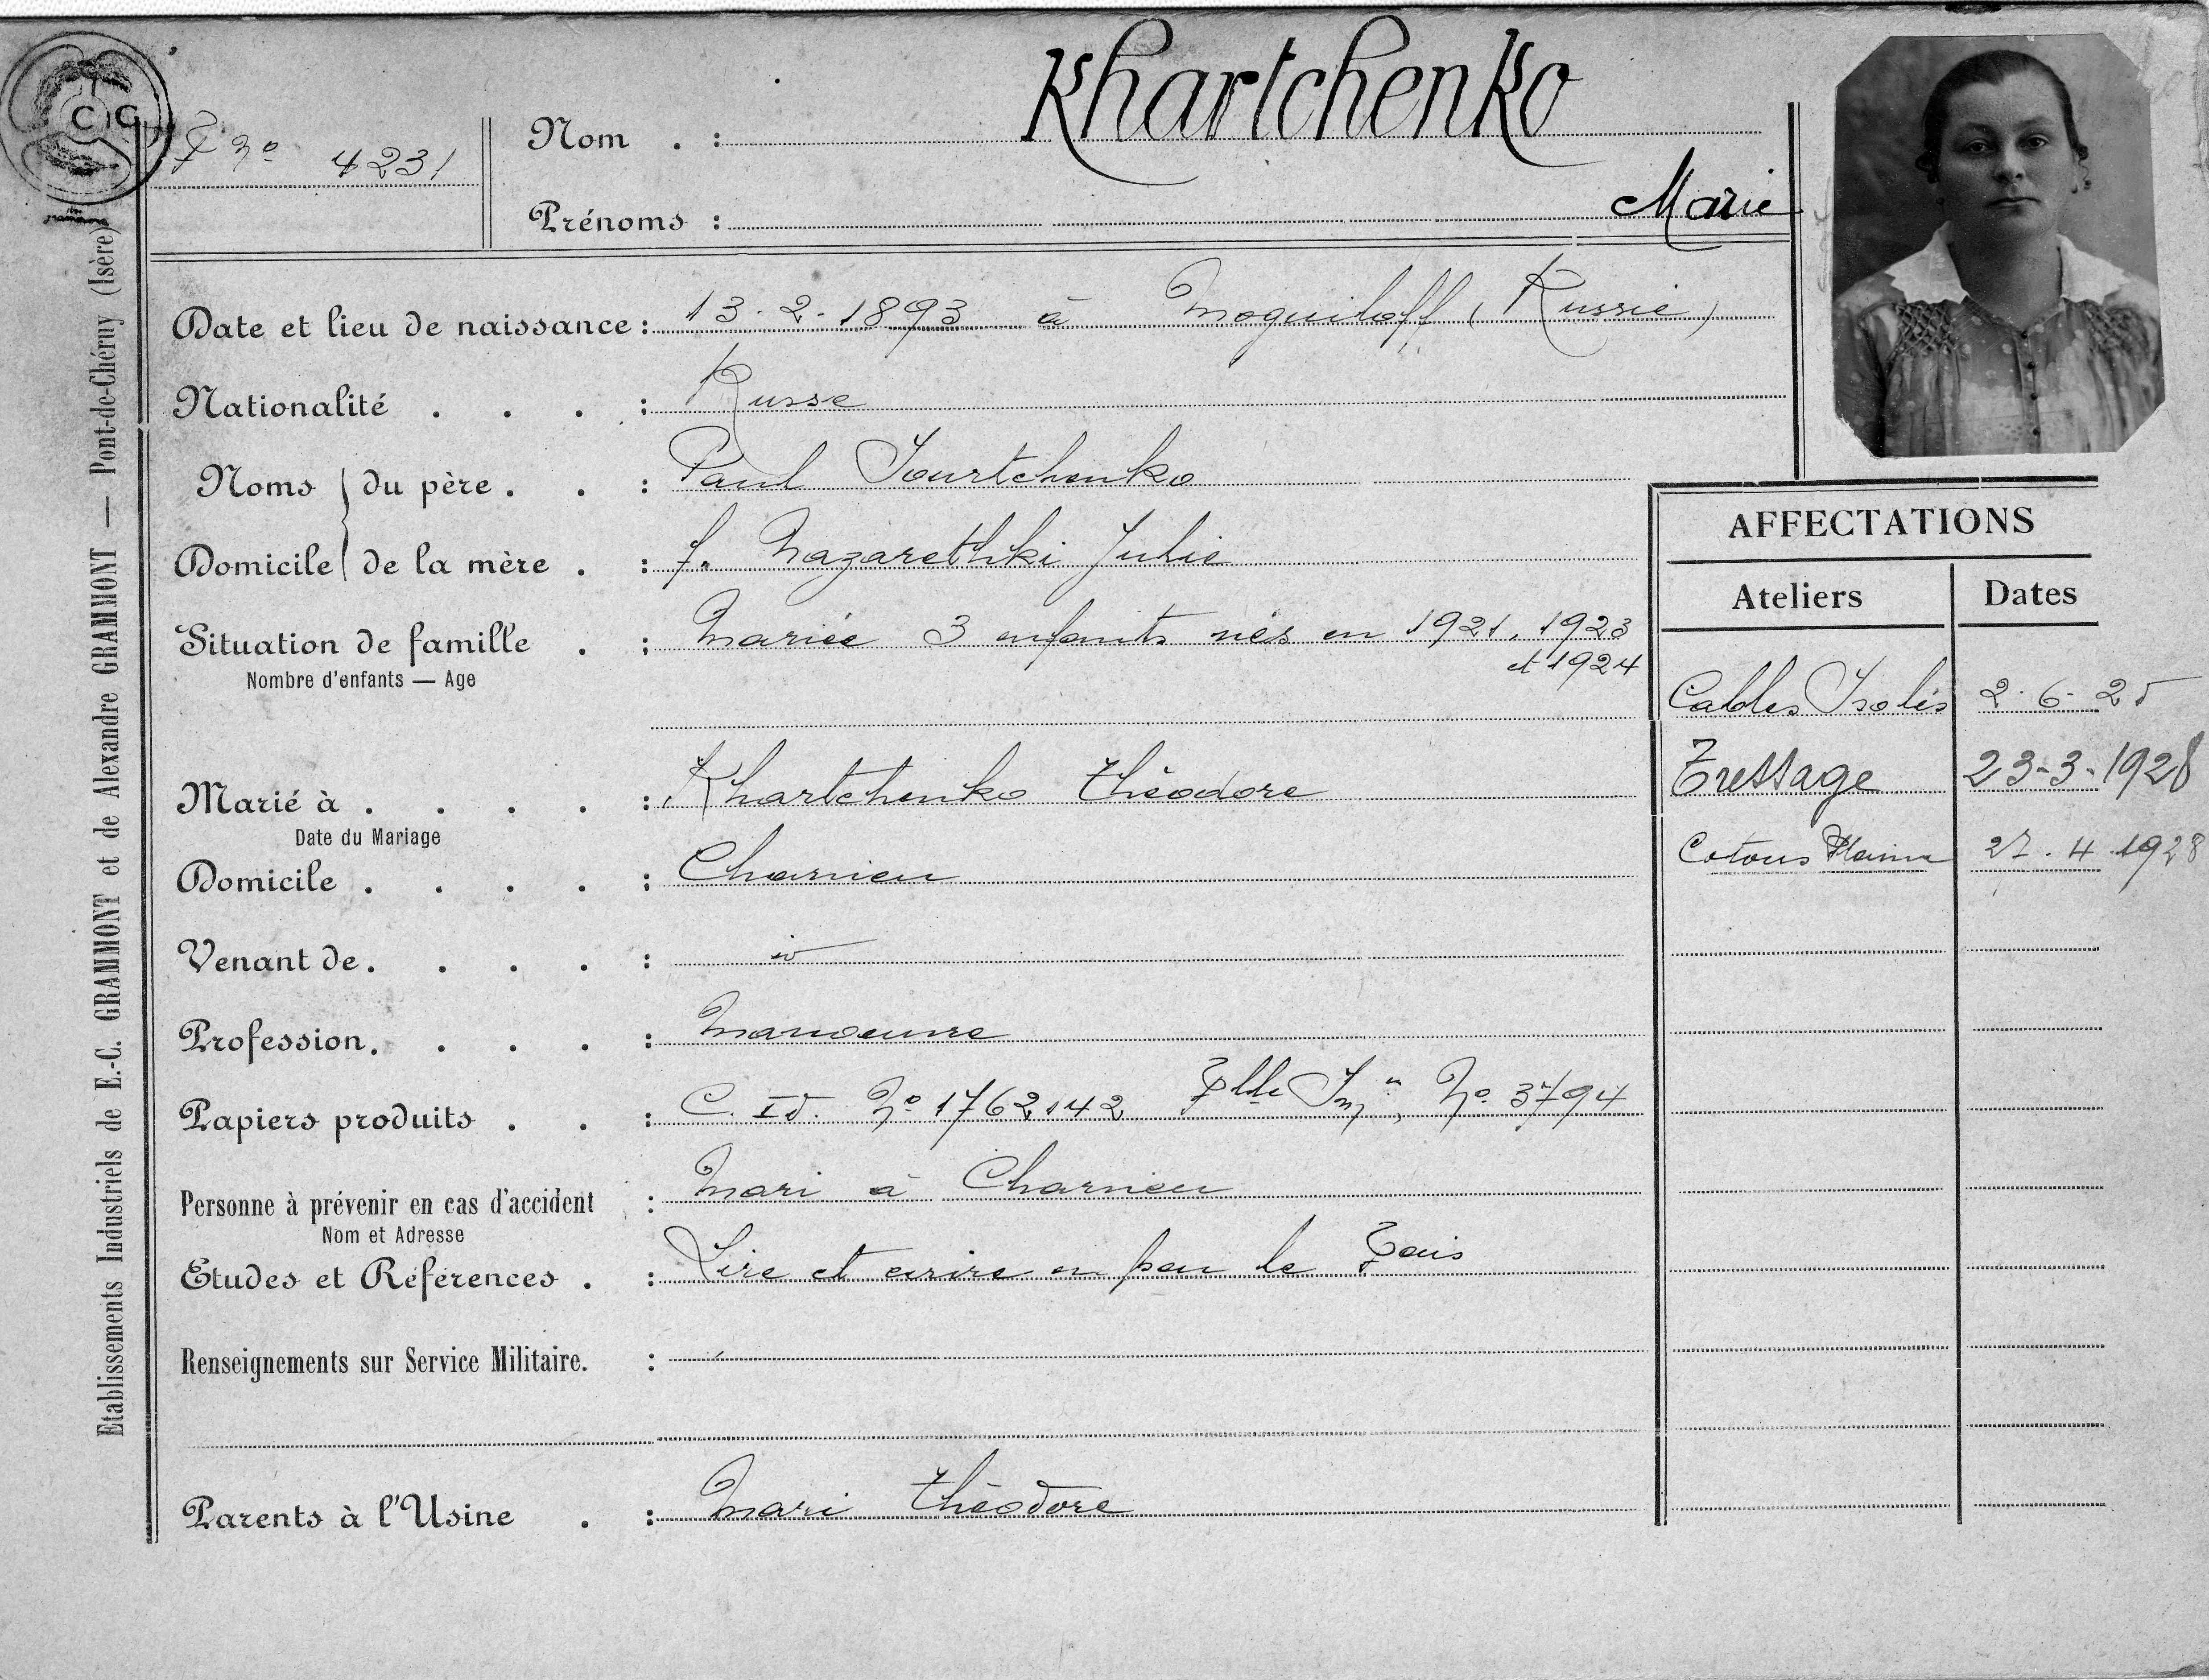 C G
F nº 4231
Nom . : Khartchenko
Prénoms : Marie
Etablissements Industriels de E.-C. GRAMMONT et de Alexandre GRAMMONT — Pont-de-Chéruy (Isère)
Date et lieu de naissance : 13.2.1893 à Moguiloff (Russie)
Nationalité . . . : Russe
Noms du père . . : Paul Iourtchenko
Domicile de la mère . : f. Nazarethki Julie
Situation de famille . : Mariée 3 enfants nés en 1921, 1923
et 1924
Nombre d'enfants — Age
Marié à . . . . : Khartchenko Théodore
Date du Mariage
Domicile . . . . : Charvieu
Venant de . . . . :
Profession . . . . : Manoeuvre
Papiers produits . . : C. Id. Nº 1762142 Nº 3794
Personne à prévenir en cas d'accident : Mari à Charvieu
Nom et Adresse
Etudes et Références . : Lire et écrire un peu le Fçais
Renseignements sur Service Militaire. :
Parents à l'Usine . : Mari Théodore
AFFECTATIONS
Ateliers Dates
Cables Isolés 2.6.25
Tressage 23-3-1928
Cotons 27.4.1928